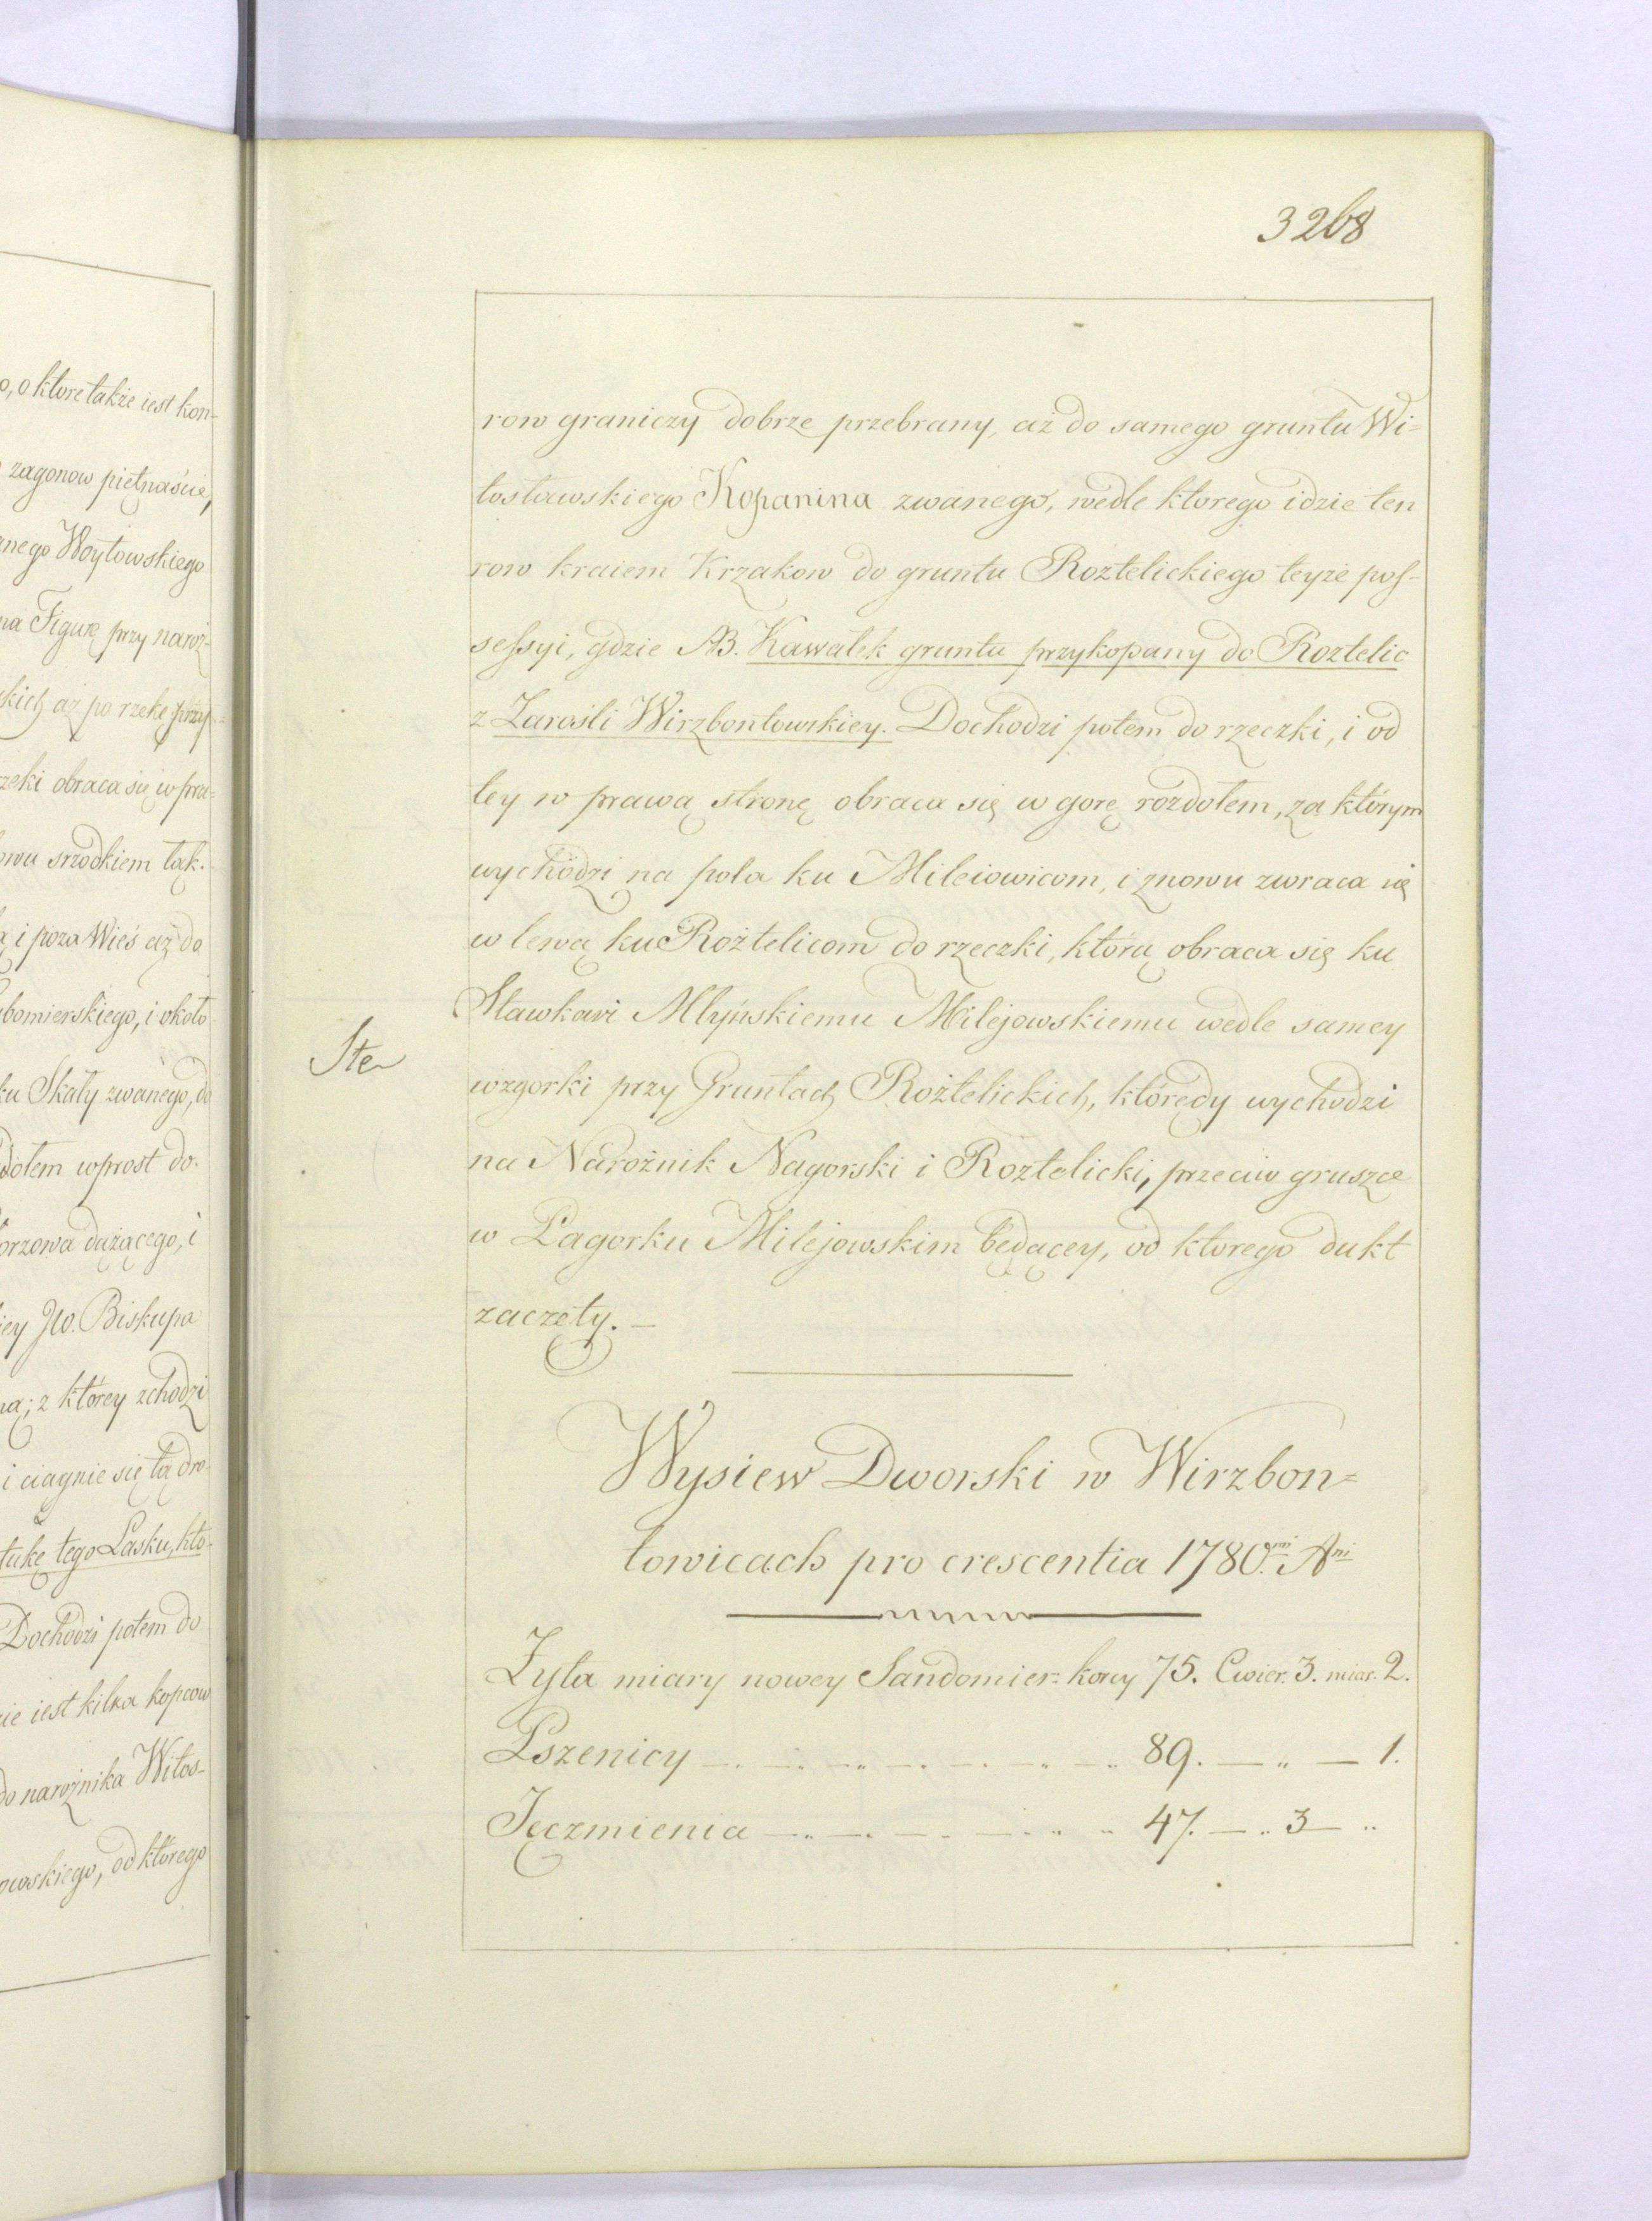 o, o ktore także iest kon-
zagonow piętnaście,
nego Woytowskiego
na Figurę przy naroż-
skich aż po rzekę przy-
rzeki obraca się w pra=
owu srzodkiem łąk.
ą i poza Wieś aż do
bomierskiego, i około
ku Skały zwanego, do
dołem wprost do.
orzowa dążącego, i
iey Jw. Biskupa
na; z którey zchodzi
i ciągnie się tą dro-
tukę tego Lasku, kto-
Dochodzi potem do
ie iest kilka kopcow
do narożnika Witos-
owskiego, od którego
3268
row graniczy dobrze przebrany, aż do samego gruntu Wi=
tosławskiego Kopanina zwanego, wedle ktorego idzie ten
row kraiem Krzakow do gruntu Roztelickiego teyże pos-
sessyi, gdzie NB. Kawałek gruntu przykopany do Roztelic
z Zarośli Wirzbontowskiey. Dochodzi potem do rzeczki, i od
tey w prawą stronę obraca się w gorę rozdołem, za którym
wychodzi na pola ku Mileiowicom, i znowu zwraca się
w lewą ku Roztelicom do rzeczki, którą obraca się ku
Stawkowi Młyńskiemu Milejowskiemu wedle samey
Ste
wzgorki przy Gruntach Roztelickich, którędy wychodzi
na Narożnik Nagorski i Roztelicki, przeciw gruszce
w Pagorku Milejowskim będącey, od ktorego dukt
zaczęty. —
Wysiew Dworski w Wirzbon=
towicach pro crescentia 1780.mi Ani
Żyta miary nowey Sandomier: korcy 75. Cwier. 3. miar. 2.
Pszenicy 89. — " — 1.
Jęczmienia 47. — " 3 — "